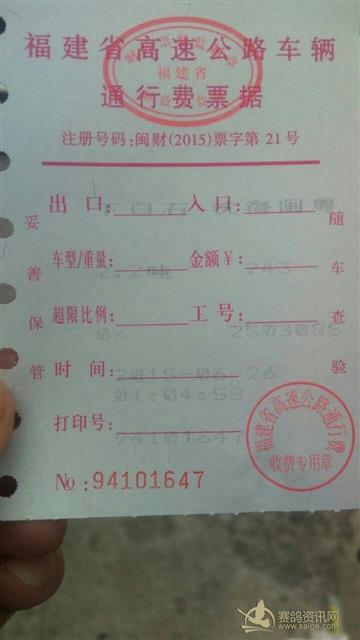 福建省高速公路车辆
福建省
通行费票据
注册号码:闽财(2015)票字第21号
出口: 王白石 入口: 沈海闽粤
车型/重量: 2.2吨 金额¥: 243
超限比例: 0% 工号: 2503085
时间: 2015-06-26
01:04:58
打印号: 94101647
妥善保管
随车查验
No:94101647
福建省高速公路通行费
收费专用章
赛鸽资讯网
www.saige.com